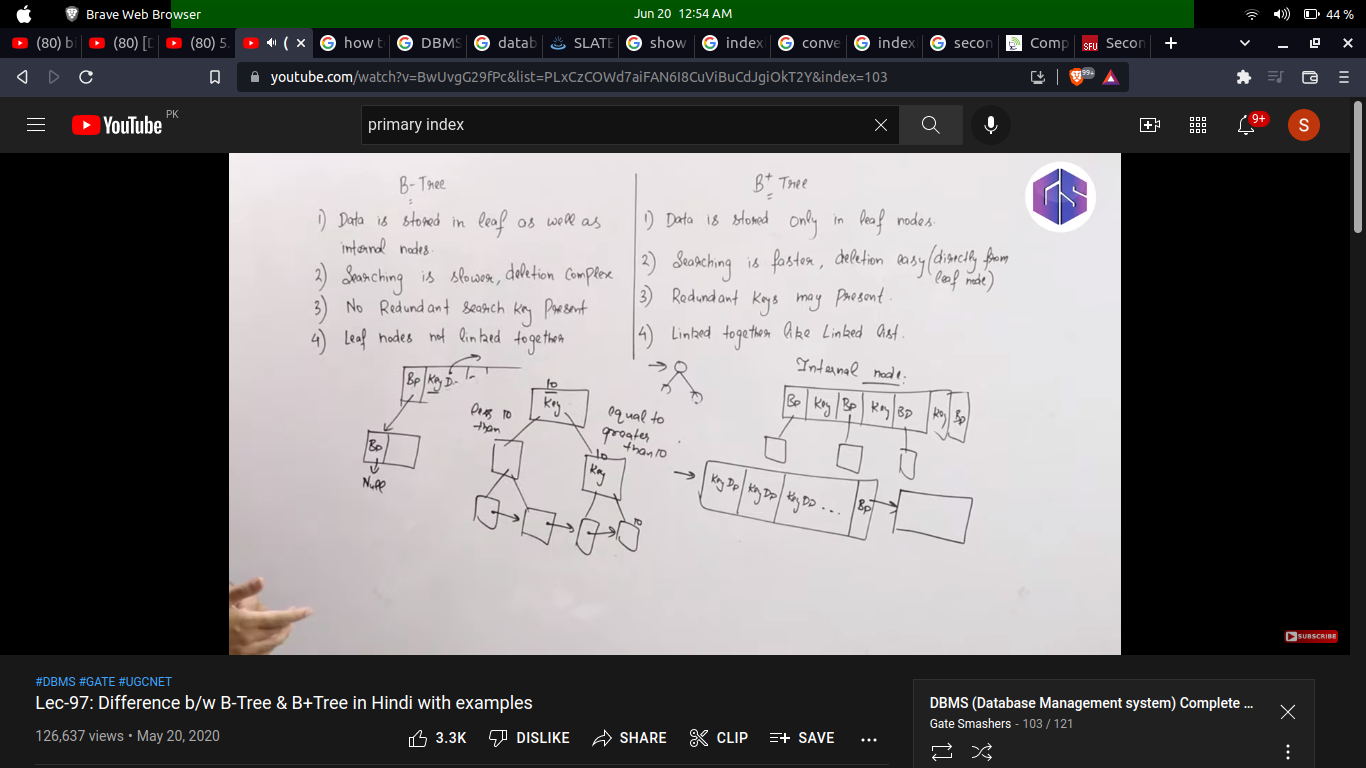 Brave Web Browser
Jun 20 12:54 AM
44 %
(80) bi
(80) [D
(80) 5.
(
how t
DBMS
datab
SLATE
show
index
conve
index
secon
Comp
SFU Secon
youtube.com/watch?v=BwUvgG29fPc&list=PLxCzCOWd7aiFAN6I8CuViBuCdJgiOkT2Y&index=103
99+
YouTube PK
primary index
9+
S
B-Tree
1) Data is stored in leaf as well as
internal nodes.
2) Searching is slower, deletion complex
3) No Redundant search key present
4) Leaf nodes not linked together
B+ Tree
1) Data is stored only in leaf nodes.
2) Searching is faster, deletion easy (directly from
leaf node)
3) Redundant keys may present.
4) Linked together like Linked list.
Bp Key D
Bp
Null
10
Key
less 10
than
equal to
greater
than 10
10
Key
10
Internal node:
Bp Key Bp Key Bp Key Bp
Key Dp Key Dp Key Dp ... Bp
SUBSCRIBE
#DBMS #GATE #UGCNET
Lec-97: Difference b/w B-Tree & B+Tree in Hindi with examples
126,637 views • May 20, 2020
3.3K
DISLIKE
SHARE
CLIP
SAVE
DBMS (Database Management system) Complete ...
Gate Smashers - 103 / 121